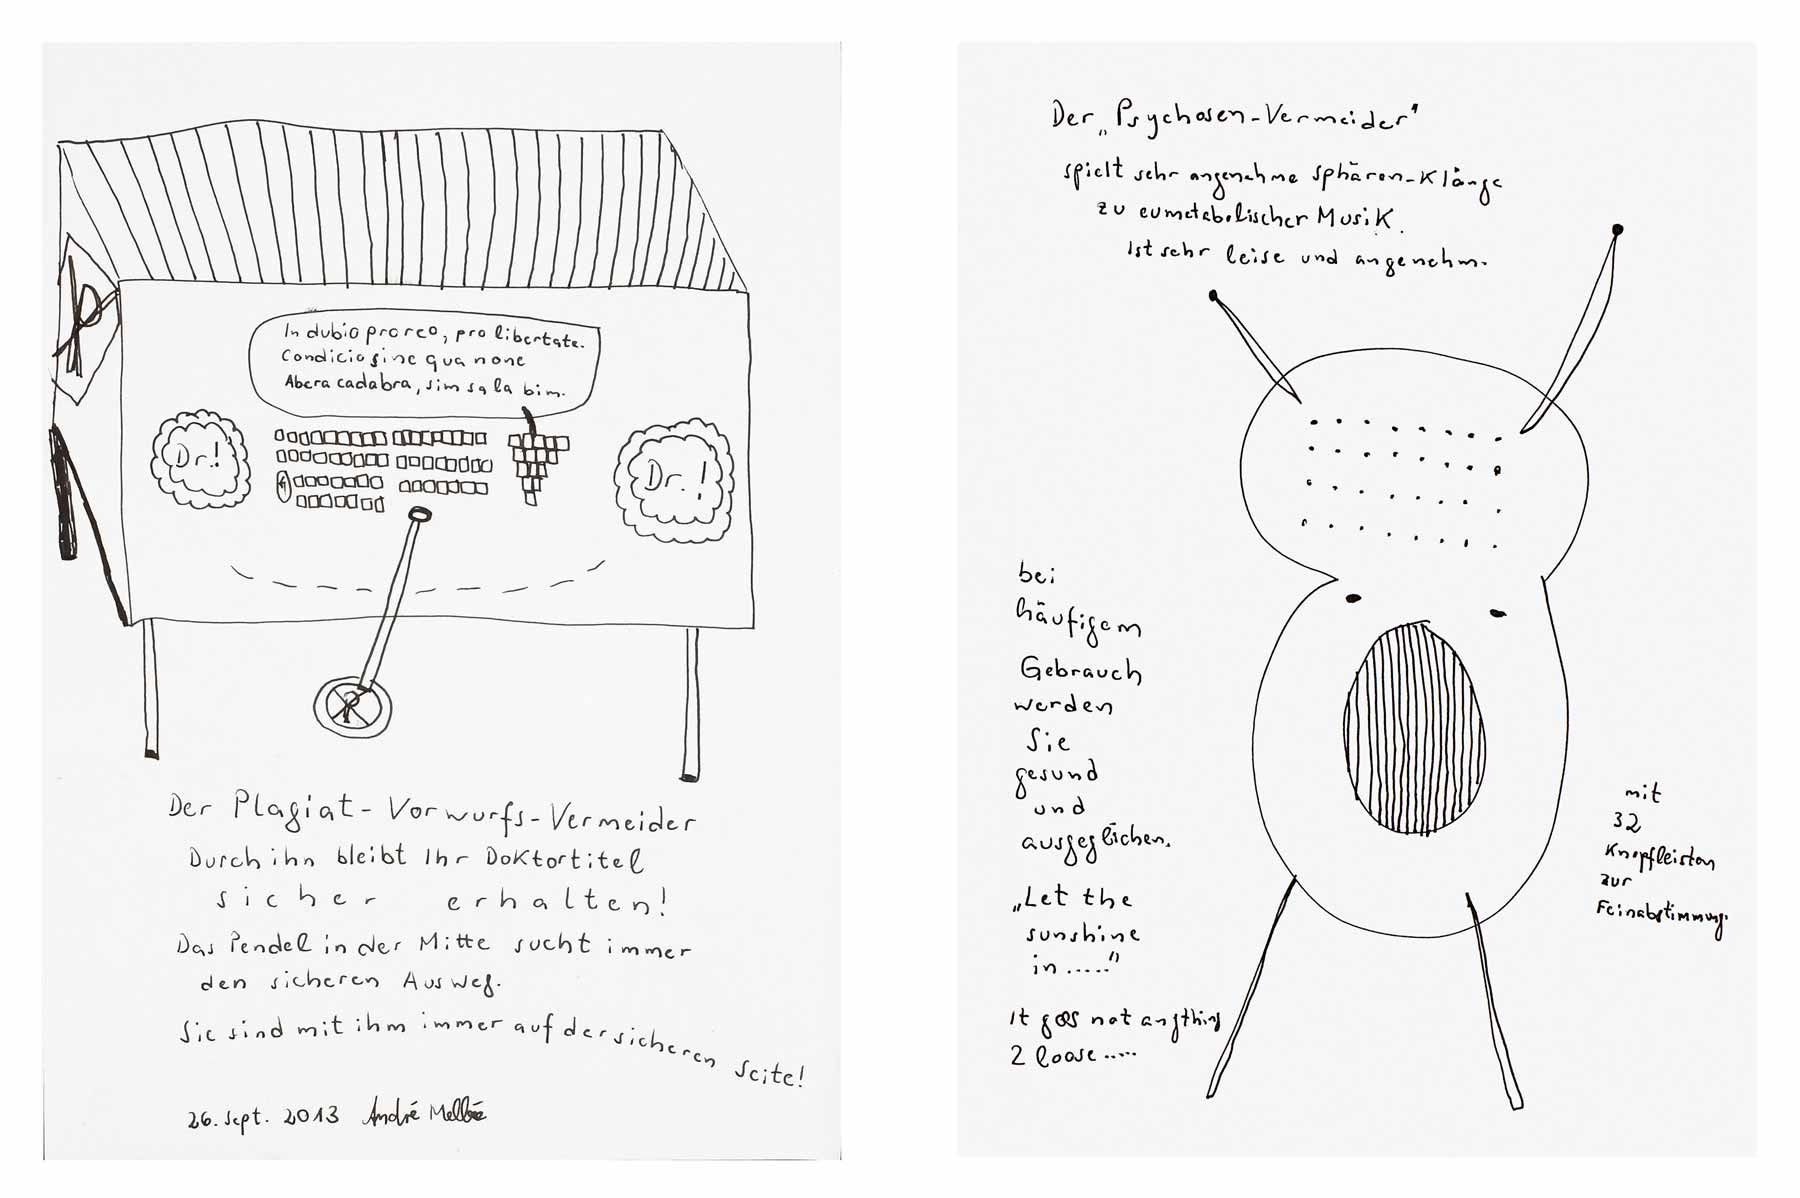 In dubio pro reo, pro libertate.
Condicio sine qua none
Abera cadabra, sim sa la bim.
Dr.!
Dr.!
Der Plagiat-Vorwurfs-Vermeider
Durch ihn bleibt Ihr Doktortitel
sicher erhalten!
Das Pendel in der Mitte sucht immer
den sicheren Ausweg.
Sie sind mit ihm immer auf der sicheren Seite!
26. Sept. 2013 André
Der „Psychosen-Vermeider"
spielt sehr angenehme Sphären-Klänge
zu eumetabolischer Musik.
Ist sehr leise und angenehm.
bei
häufigem
Gebrauch
werden
Sie
gesund
und
ausgeglichen.
„Let the
sunshine
in ....."
It goes not anything
2 loose .....
mit
32
Knopfleisten
zur
Feinabstimmung.